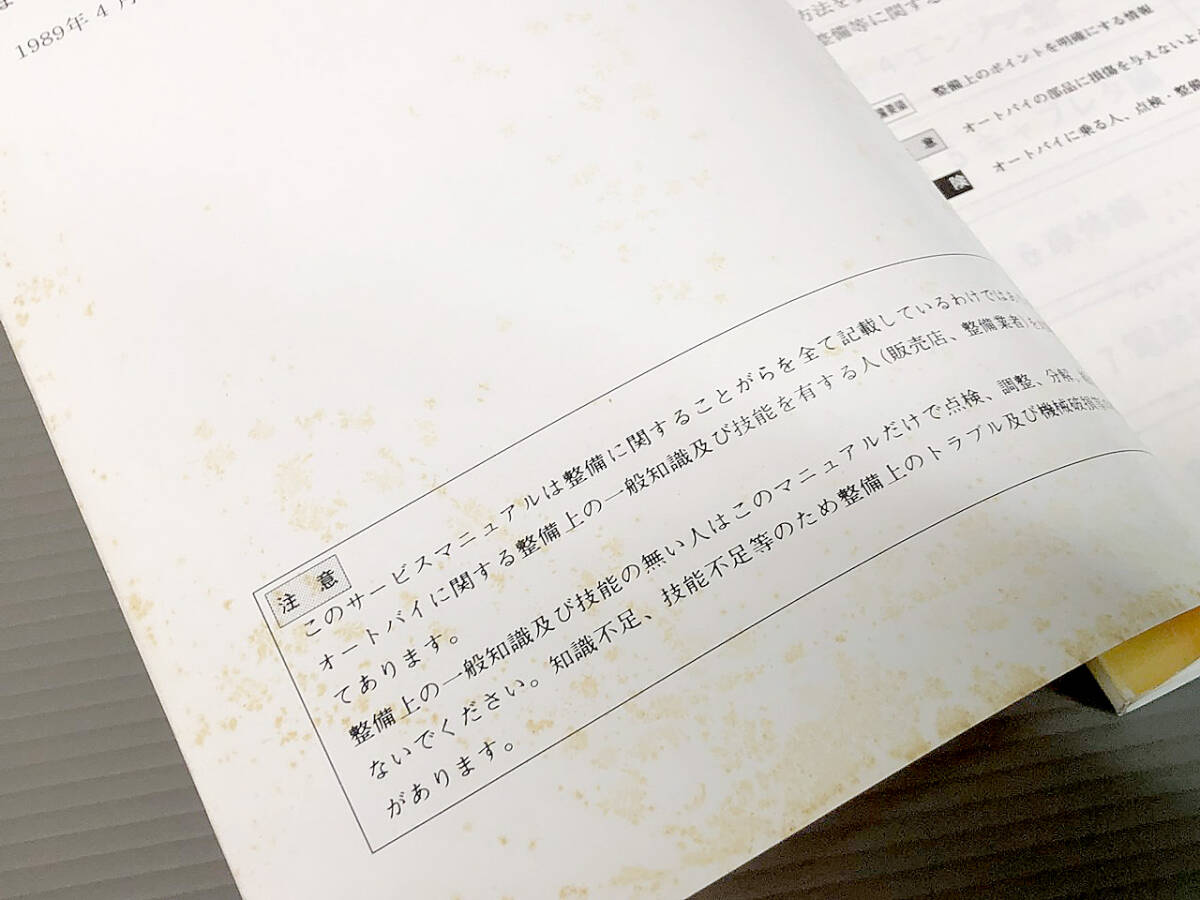 1989年4月
注意
このサービスマニュアルは整備に関することがらを全て記載しているわけではあ
オートバイに関する整備上の一般知識及び技能を有する人(販売店、整備業者)を
てあります。
整備上の一般知識及び技能の無い人はこのマニュアルだけで点検、調整、分解、
ないでください。知識不足、技能不足等のため整備上のトラブル及び機械破損
があります。
方法を
整備等に関する
整備上のポイントを明確にする情報
意 オートバイの部品に損傷を与えないよう
険 オートバイに乗る人、点検・整備